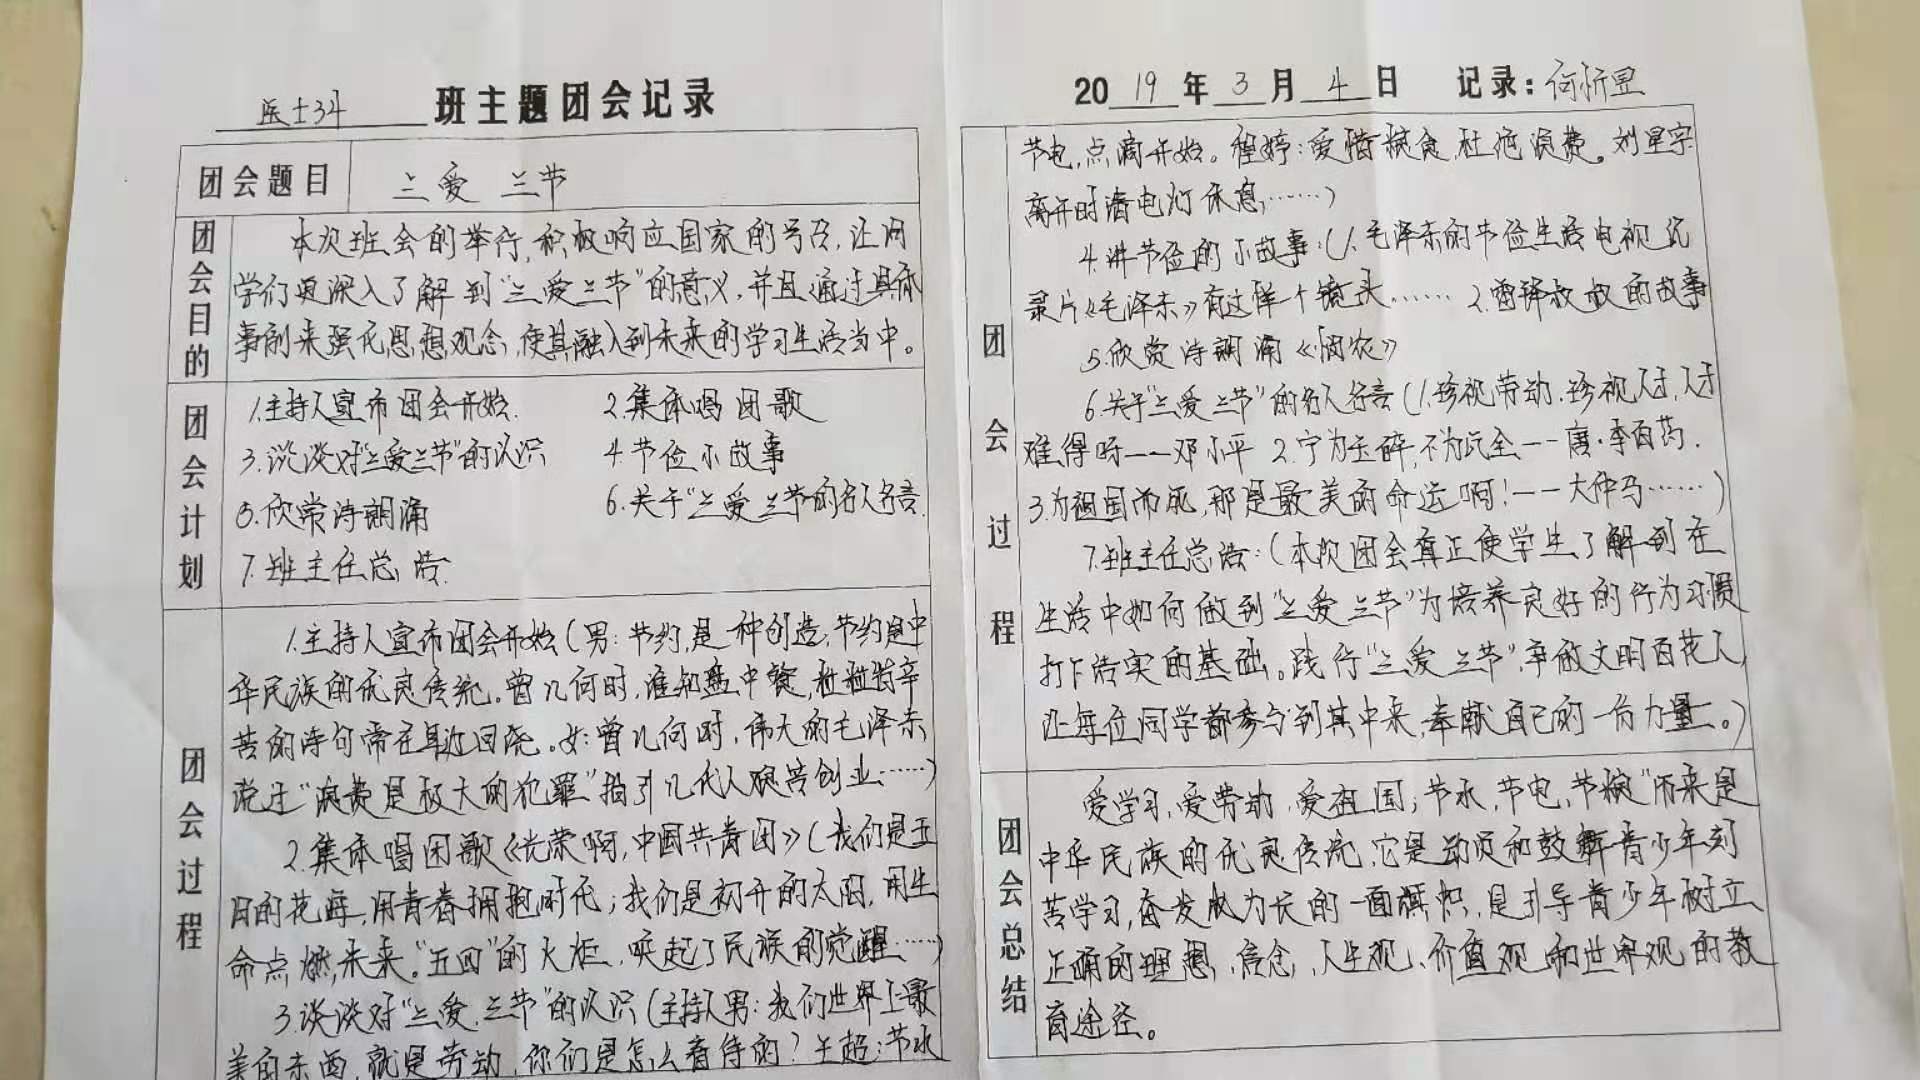 医士34 班主题团会记录
团会题目 三爱 三节
团会目的
本次班会的举行,积极响应国家的号召,让同
学们更深入了解到“三爱三节”的意义,并且通过具体
事例来强化思想观念,使其融入到未来的学习生活当中。
团会计划
1.主持人宣布团会开始. 2.集体唱团歌
3.谈谈对“三爱三节”的认识 4.节俭小故事
5.欣赏诗朗诵 6.关于“三爱三节”的名人名言.
7.班主任总结.
团会过程
1.主持人宣布团会开始(男:节约,是一种创造,节约是中
华民族的优良传统。曾几何时,谁知盘中餐,粒粒皆辛
苦的诗句常在耳边回绕。女:曾几何时,伟大的毛泽东
说过“浪费是极大的犯罪”指引几代人艰苦创业……)
2.集体唱团歌《光荣啊,中国共青团》(我们是五
月的花海,用青春拥抱时代;我们是初升的太阳,用生
命点燃未来。“五四”的火炬,唤起了民族的觉醒……)
3.谈谈对“三爱,三节”的认识(主持人男:我们世界上最
美的东西,就是劳动,你们是怎么看待的?王超:节水
2019年3月4日 记录:何忻昱
团会过程
节电,点滴开始。程婷:爱惜粮食,杜绝浪费。刘星宇
离开时请电灯休息,……)
4.讲节俭的小故事:(1.毛泽东的节俭生活电视纪
录片《毛泽东》有这样一个镜头…… 2.雷锋叔叔的故事
5.欣赏诗朗诵《悯农》
6.关于“三爱三节”的名人名言(1.珍视劳动,珍视人才,人才
难得呀——邓小平 2.宁为玉碎,不为瓦全——唐·李百药.
3.为祖国而死,那是最美的命运啊!——大仲马……)
7.班主任总结:(本次团会真正使学生了解到在
生活中如何做到“三爱三节”为培养良好的行为习惯
打下结实的基础。践行“三爱三节”,争做文明百花人,
让每位同学都参与到其中来,奉献自己的一份力量。)
团会总结
爱学习,爱劳动,爱祖国;节水,节电,节粮”历来是
中华民族的优良传统,它是动员和鼓舞青少年刻
苦学习,奋发成为长的一面旗帜,是引导青少年树立
正确的理想,信念,人生观、价值观和世界观的教
育途径。